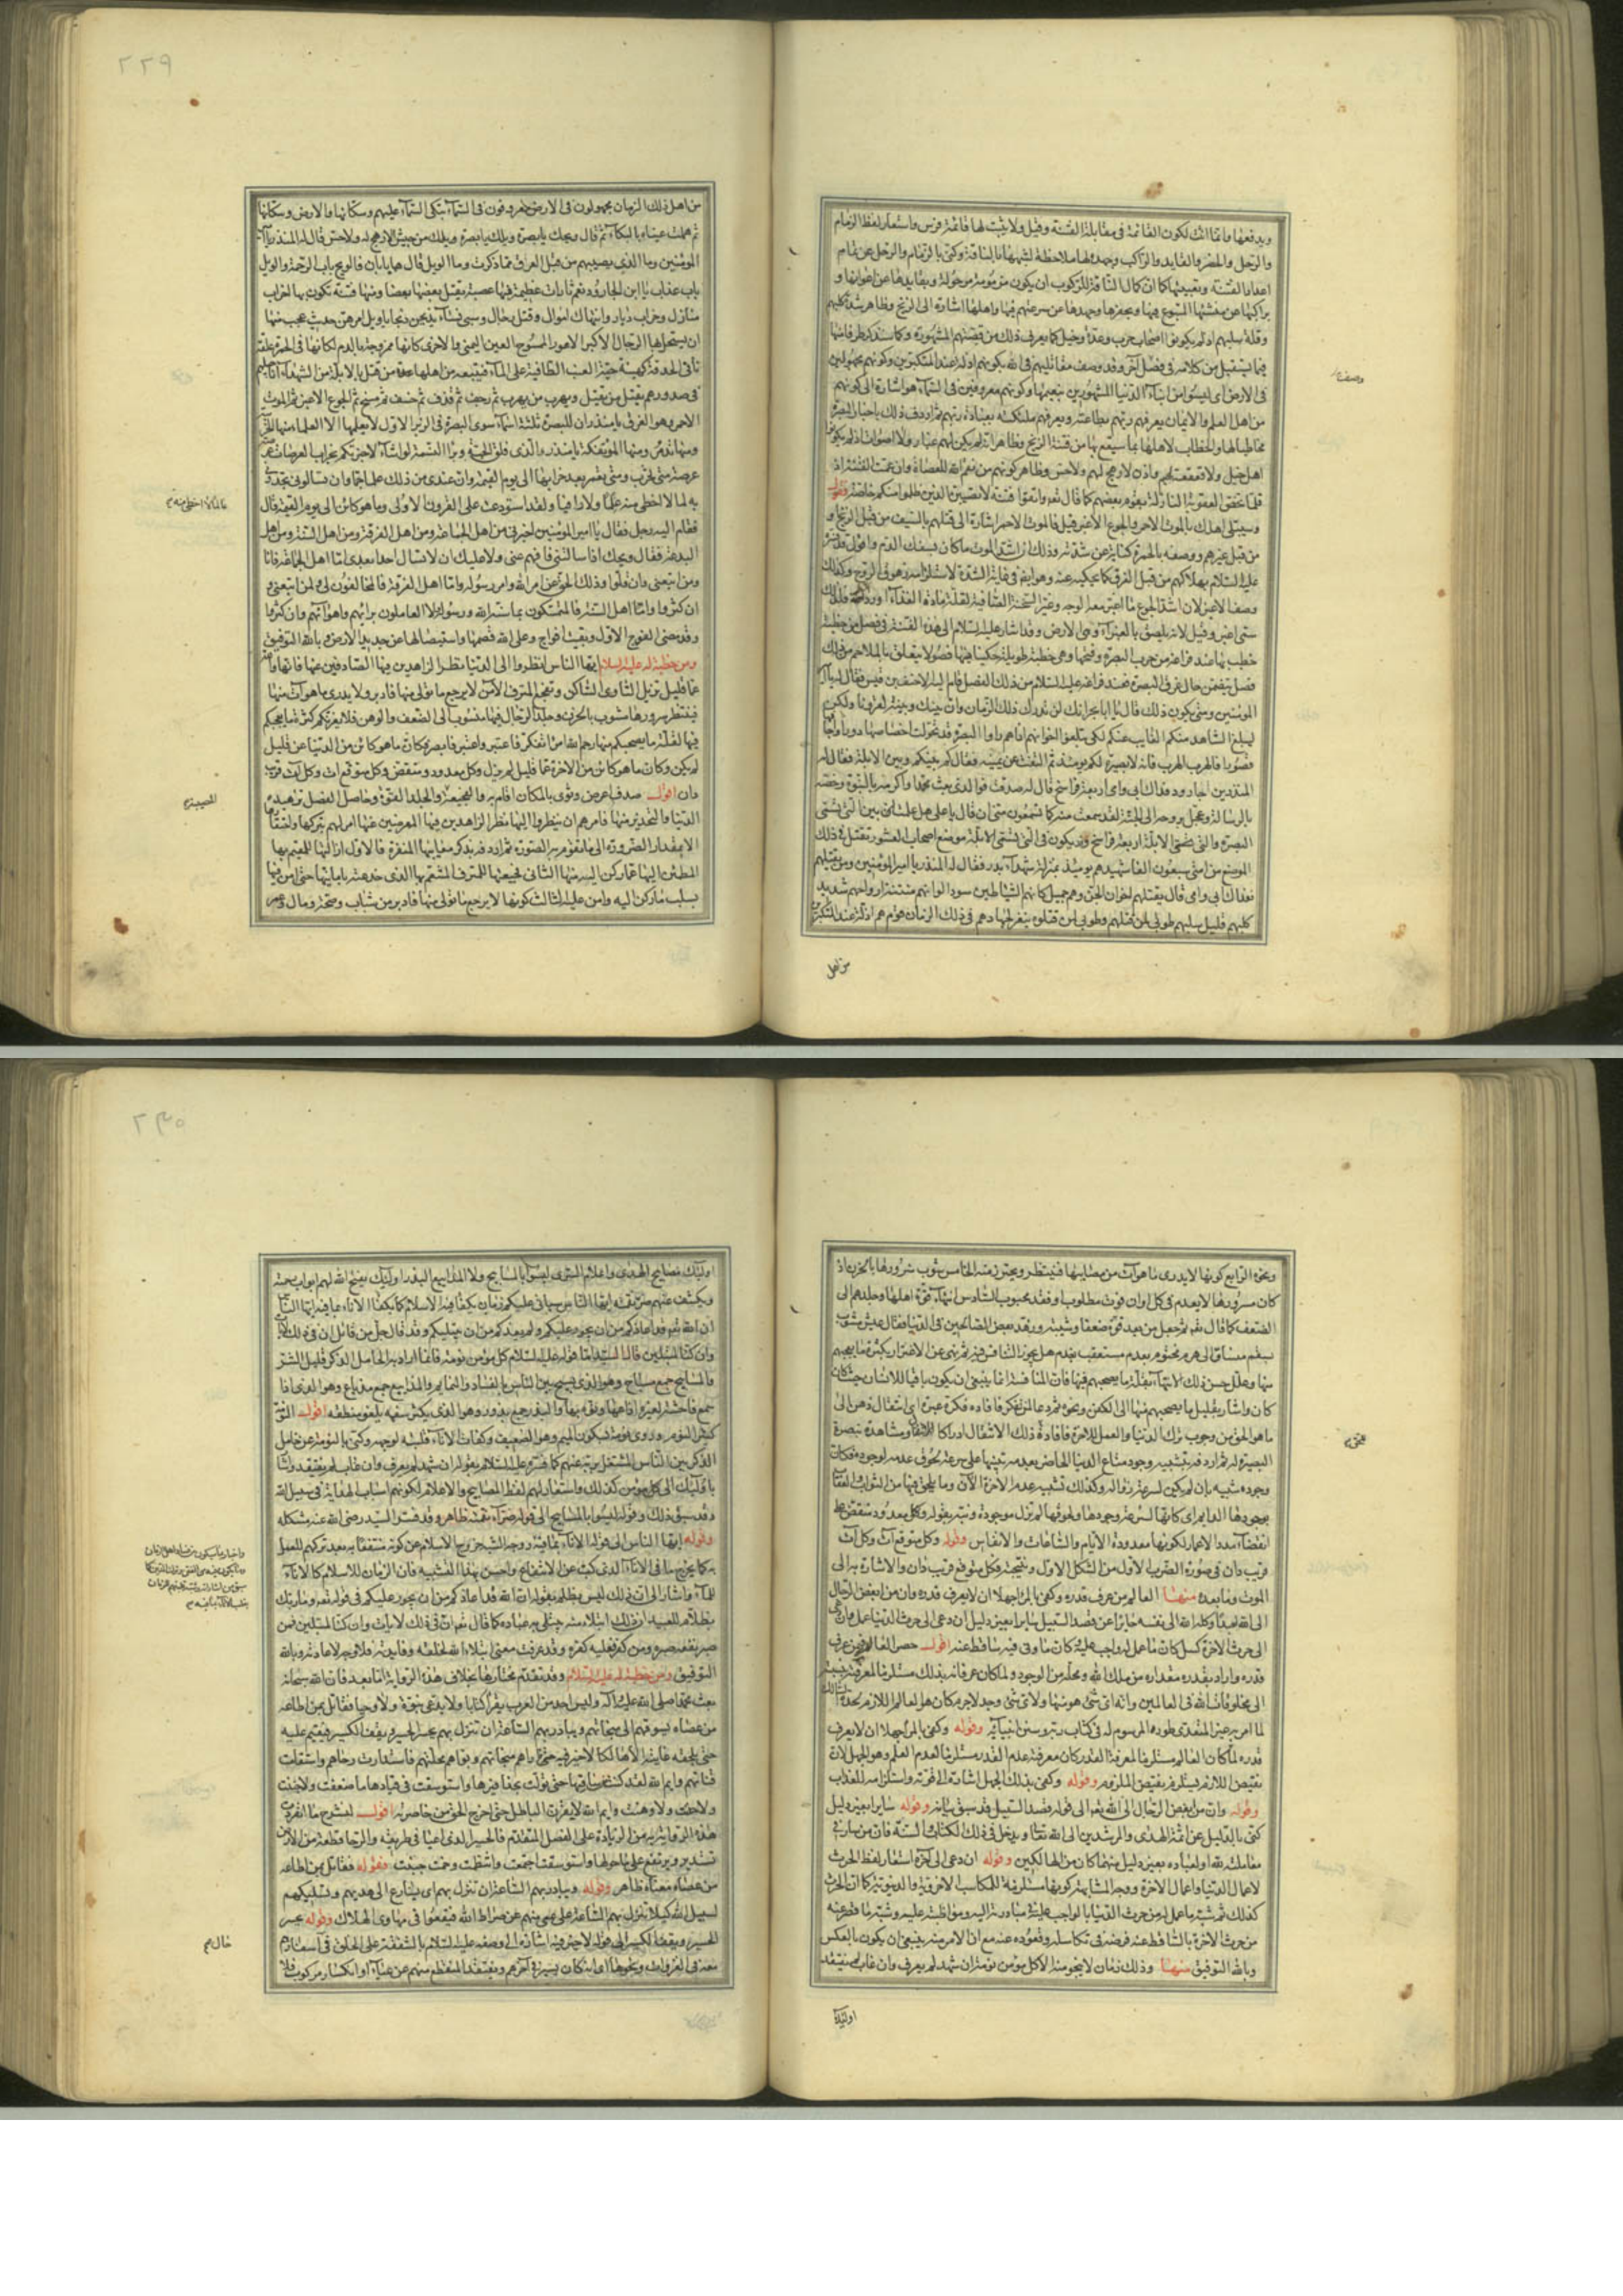 ويدفعها واما انث لكون القائمة في مقابلة الفتنة وقيل ولا يثبت لها قائمة فرس واستعار لفظ الزمام
والرحل والحفز والقايد والراكب وجهده لها ملاحظة لشبهها بالناقة وكنى بالزمام والرحل عن تمام
اعداد الفتنة وتعبيتها كما ان كمال الناقة للركوب ان يكون مزمومة مرحولة وبقايدها عن اعوانها و
براكبها عن منشئها المتبوع فيها وبحفزها وجهدها عن سرعتهم فيها واهلها اشارة الى الزنج وظاهر شدة كلبهم
وقلة سلبهم اذ لم يكونوا اصحاب حرب وعدة وخيل كما يعرف ذلك من قصتهم المشهورة وكما سنذكر طرفا منها
فيما يستقبل من كلامه في فصل آخر وقد وصف مقاتليهم في الله بكونهم اذلة عند المتكبرين وكونهم مجهولين
في الارض اي ليسوا من ابناء الدنيا المشهورين بنعيمها وكونهم معروفين في السماء هو اشارة الى كونهم
من اهل العلم والايمان يعرفهم ربهم بطاعته ويعرفهم ملئكته بعبادة ربهم ثم اردف ذلك باخبار البصرة
مخاطبا لها والخطاب لاهلها بما سيقع بها من فتنة الزنج وظاهر انه لم يكن لهم غبار ولا اصوات اذ لم يكونوا
اهل خيل ولا قعقعة لجم فاذن لا رهج لهم ولا حس وظاهر كونهم من نقم الله للعصاة وان عمت الفتنة اذ
قلما تخص العقوبة النازلة بقوم بعضهم كما قال تعه واتقوا فتنة لا تصيبن الذين ظلموا منكم خاصة وقوله
وسيبتلى اهلك بالموت الاحمر والجوع الاغبر قيل فالموت الاحمر اشارة الى قتلهم بالسيف من قبل الزنج او
من قبل غيرهم ووصفه بالحمرة كناية عن شدته وذلك لان اشد الموت ما كان بسفك الدم واقول قد فسره
عليه السلام بهلاكهم من قبل الغرق كما نحكيه عنه وهو ايضا في غاية الشدة لاستلزامه زهوق الروح وكذلك
وصف الاغبر لان اشد الجوع ما اغبر معه الوجه وغبر السحنة الصافية لقلة مادة الغذاء او رداءته فلذلك
سمى اغبر وقيل لانه يلصق بالغبراء وهي الارض وقد اشار عليه السلام الى هذه الفتنة في فصل من خطبة
خطب بها عند فراغه من حرب البصرة وفتحها وهي خطبة طويلة حكينا منها فصولا يتعلق بالملاحم من ذلك
فصل يتضمن حال غرق البصرة فعند فراغه عليه السلام من ذلك الفصل قام اليه الاحنف بن قيس فقال له يا امير
المؤمنين ومتى يكون ذلك قال يا ابا بحر انك لن تدرك ذلك الزمان وان بينك وبينه لقرونا ولكن
ليبلغ الشاهد منكم الغايب عنكم لكي يبلغوا اخوانهم اذا هم راوا البصرة قد تحولت اخصاصها دورا واجامها
قصورا فالهرب الهرب فانه لا بصرة لكم يومئذ ثم التفت عن يمينه فقال كم بينكم وبين الابلة فقال له
المنذر بن الجارود فداك ابي وامي اربعة فراسخ قال له صدقت فوالذي بعث محمدا واكرمه بالنبوة وخصه
بالرسالة وعجل بروحه الى الجنة لقد سمعت منه كما تسمعون مني ان قال يا علي هل علمت ان بين التي تسمى
البصرة والتي تسمى الابلة اربعة فراسخ وقد يكون في التي تسمى الابلة موضع اصحاب العشور تقتل في ذلك
الموضع من امتي سبعون الفا شهيدهم يومئذ بمنزلة شهداء بدر فقال له المنذر يا امير المؤمنين ومن يقتلهم
فداك ابي وامي قال يقتلهم اخوان الجن وهم جيل كانهم الشياطين سود الوانهم منتنة ارواحهم شديد
كلبهم قليل سلبهم طوبى لمن قتلهم وطوبى لمن قتلوه ينفر لجهادهم في ذلك الزمان قوم هم اذلة عند المتكبرين
من اهل
وصف
من اهل ذلك الزمان مجهولون في الارض معروفون في السماء تبكى السماء عليهم وسكانها والارض وسكانها
ثم هملت عيناه بالبكاء ثم قال ويحك يا بصرة ويلك يا بصرة ويلك من جيش لا رهج له ولا حس قال له المنذر يا امير
المؤمنين وما الذي يصيبهم من قبل الغرق مما ذكرت وما الويل قال هما بابان فالويح باب الرحمة والويل
باب عذاب يا ابن الجارود نعم ثارات عظيمة منها عصبة يقتل بعضها بعضا ومنها فتنة تكون بها اخراب
منازل وخراب ديار وانتهاك اموال وقتل رجال وسبي نساء يذبحن ذبحا يا ويل امرهن حديث عجب منها
ان يستحل بها الدجال الاكبر الاعور الممسوح العين اليمنى والاخرى كانها ممزوجة بالدم لكانها في الحمرة علقة
ناتي الحدقة كهيئة حبة العنب الطافية على الماء فيتبعه من اهلها عدة من قتل بالابلة من الشهداء اناجيلهم
في صدورهم يقتل من يقتل ويهرب من يهرب ثم رجف ثم قذف ثم خسف ثم مسخ ثم الجوع الاغبر ثم الموت
الاحمر وهو الغرق يا منذر ان للبصرة ثلثة اسماء سوى البصرة في الزبر الاول لا يعلمها الا العلماء منها الخريبة
ومنها تدمر ومنها المؤتفكة يا منذر والذي فلق الحبة وبرا النسمة لو اشاء لاخبرتكم بخراب العرصات عرصة
عرصة متى تخرب ومتى تعمر بعد خرابها الى يوم القيمة وان عندي من ذلك علما جما وان تسالوني تجدوني
به عالما لا اخطي منه علما ولا دافيا ولقد استودعت علم القرون الاولى وما هو كائن الى يوم القيمة قال
فقام اليه رجل فقال يا امير المؤمنين اخبرني من اهل الجماعة ومن اهل الفرقة ومن اهل السنة ومن اهل
البدعة فقال ويحك اذا سالتني فافهم عني ولا عليك ان لا تسال احدا بعدي اما اهل الجماعة فانا
ومن اتبعني وان قلوا وذلك الحق عن امر الله وامر رسوله واما اهل الفرقة فالمخالفون لي ولمن اتبعني و
ان كثروا واما اهل السنة فالمتمسكون بما سنه الله ورسوله لا العاملون برايهم واهوائهم وان كثروا
وقد مضى الفوج الاول وبقيت افواج وعلى الله قصمها واستيصالها عن جديد الارض وبالله التوفيق
ومن خطبة له عليه السلام ايها الناس انظروا الى الدنيا نظر الزاهدين فيها الصادفين عنها فانها والله
عما قليل تزيل الثاوي الساكن وتفجع المترف الآمن لا يرجع ما تولى منها فادبر ولا يدرى ما هو آت منها
فينتظر سرورها مشوب بالحزن وجلد الرجال فيها منسوب الى الضعف والوهن فلا يغرنكم كثرة ما يعجبكم
فيها لقلة ما يصحبكم منها رحم الله امرا تفكر فاعتبر واعتبر فابصر فكان ما هو كائن من الدنيا عن قليل
لم يكن وكان ما هو كائن من الاخرة عما قليل لم يزل وكل معدود منتقض وكل متوقع آت وكل آت قريب
دان اقول صدف اعرض وثوى بالمكان اقام به والفجيعة والجلد القوة وحاصل الفصل تزهيد
الدنيا والتحذير منها فامرهم ان ينظروا اليها نظر الزاهدين فيها المعرضين عنها امرا لهم بتركها واحتقارها
الا بمقدار الضرورة الى ما تقوم به الضرورة ثم اردف بذكر معايبها المنفرة فالاول ازالتها للمقيم بها
المطمئن اليها عما ركن اليه منها الثاني فجيعتها للمترف المتنعم بها الذي خدعته بامانيها حتى امن فيها
بسلب ما ركن اليه وامن عليه الثالث كونها لا يرجع ما تولى منها فادبر من شباب وصحة ومال وعمر
عالما لا اخطي منه
المصيبة
٢٢٩
ونحوه الرابع كونها لا يدرى ما هو آت من مصايبها فينتظر ويحترز منه الخامس شوب سرورها بالحزن اذ
كان مسرورها لا يعدم في كل اوان فوت مطلوب او فقد محبوب السادس انتهاء قوة اهلها وجلدهم الى
الضعف كما قال تعه ثم جعل من بعد قوة ضعفا وشيبة وزهد بعض الصالحين في الدنيا فقال عيش مشوب
بسقم منساق الى هرم مختوم بعدم مستعقب بندم هل يجوز التنافس فيه ثم نهى عن الاغترار بكثرة ما يعجبهم
منها وعلل حسن ذلك الانتهاء بقلة ما يصحبهم فيها فان المنافسة انما ينبغي ان يكون باقيا للانسان حيث كان
كان واشار بقليل ما يصحبهم منها الى الكفن ونحوه ثم دعا لمن تفكر فافاده فكره عبرة اي انتقال ذهن الى
ما هو الحق من وجوب ترك الدنيا والعمل للاخرة فافاده ذلك الانتقال ادراكا للحق ومشاهدة ببصيرة
البصيرة له ثم اردفه بتشبيه وجود متاع الدنيا الحاضر بعدمه تنبيها على سرعة لحوق عدمه لوجوده فكان
وجوده شبيه بان لم يكن لسرعة زواله وكذلك تشبيه عدم الاخرة الآن وما يلحق فيها من الثواب والعقاب
بوجودها الدايم اي كانها لسرعة وجودها ولحوقها لم تزل موجودة ونبه بقوله وكل معدود منتقض على
انقضاء مدد الاعمار لكونها معدودة الايام والساعات والانفاس وقوله وكل متوقع آت وكل آت
قريب دان في صورة الضرب الاول من الشكل الاول ونتيجته فكل متوقع قريب دان والاشارة به الى
الموت وما بعده منها العالم من عرف قدره وكفى بالمرء جهلا ان لا يعرف قدره وان من ابغض الرجال
الى الله لعبدا وكله الله الى نفسه جايرا عن قصد السبيل سايرا بغير دليل ان دعي الى حرث الدنيا عمل وان دعي
الى حرث الاخرة كسل كان ما عمل له واجب عليه وكان ما ونى فيه ساقط عنه اقول حصر العالم فيمن عرف
قدره واراد بقدره مقداره من ملك الله ومحله من الوجود ولما كان عرفانه بذلك مستلزما لمعرفته بنسبته
الى مخلوقات الله في العالمين وانه اي شيء هو منها ولاي شيء وجد لا جرم كان هو العالم اللازم لحده السالك
لما امر به غير المتعدي طوره المرسوم له في كتاب ربه وسنن انبيائه وقوله وكفى بالمرء جهلا ان لا يعرف
قدره لما كان العلم مستلزما لمعرفة القدر كان معرفة عدم القدر مستلزما لعدم العلم وهو الجهل لان
نقيض اللازم يستلزم نقيض الملزوم وقوله وكفى بذلك الجهل اشارة الى قوته واستلزامه للعذاب
وقوله وان من ابغض الرجال الى الله تعه الى قوله قصد السبيل قد سبق بيانه وقوله سايرا بغير دليل
كنى بالدليل عن ائمة الهدى والمرشدين الى الله تعا ويدخل في ذلك الكتاب والسنة فان من سار في
معاملته لله او لعباده بغير دليل منهما كان من الهالكين وقوله ان دعي الى آخره استعار لفظ الحرث
لاعمال الدنيا واعمال الاخرة ووجه المشابهة كونها مستلزمة للمكاسب الاخروية والدنيوية كما ان الحرث
كذلك ثم شبه ما عمل له من حرث الدنيا بالواجب عليه في مبادرته اليه ومواظبته عليه وشبه ما قصر عنه
من حرث الاخرة بالساقط عنه فرضه في تكاسله وقعوده عنه مع ان الامر منه ينبغي ان يكون بالعكس
وبالله التوفيق منها وذلك زمان لا ينجو منه الا كل مؤمن نومة ان شهد لم يعرف وان غاب لم يفتقد
اوليك
اوليك مصابيح الهدى واعلام السرى ليسوا بالمساييح ولا المذاييع البذر اوليك يفتح الله لهم ابواب رحمته
ويكشف عنهم ضر نقمته ايها الناس سياتي عليكم زمان يكفا فيه الاسلام كما يكفا الاناء بما فيه ايها الناس
ان الله تعه قد اعاذكم من ان يجور عليكم ولم يعذكم من ان يبتليكم وقد قال جل من قائل ان في ذلك لايات
وان كنا لمبتلين قال السيد اما قوله عليه السلام كل مؤمن نومة فانما اراد به الخامل الذكر قليل الشر
والمساييح جمع مسياح وهو الذي يسيح بين الناس بالفساد والنمايم والمذاييع جمع مذياع وهو الذي اذا
سمع فاحشة لغيره اذاعها ونوه بها والبذر جمع بذور وهو الذي يكثر سفهه يلغو منطقه اقول النومة
كثير النوم وروي نومة بسكون الميم وهو الضعيف وكفات الاناء قلبته لوجهه وكنى بالنومة عن خامل
الذكر بين الناس المشتغل بربه عنهم كما فسره عليه السلام بقوله ان شهد لم يعرف وان غاب لم يفتقد واشار
باوليك الى كل مؤمن كذلك واستعار لهم لفظ المصابيح والاعلام لكونهم اسباب الهداية في سبيل الله
وقد سبق ذلك وقوله ليسوا بالمساييح الى قوله ضراء نقمته ظاهر وقد فسر السيد رضي الله عنه مشكله
وقوله ايها الناس الى قوله الاناء بما فيه وجه الشبه خروج الاسلام عن كونه منتفعا به بعد تركهم للعمل
به كما يخرج ما في الاناء الذي كب عن الانتفاع واحسن بهذا التشبيه فان الزمان للاسلام كالاناء
للماء واشار الى ان ذلك ليس بظلم بقوله ان الله قد اعاذكم من ان يجور عليكم في قوله تعه وما ربك
بظلام للعبيد بل ذلك ابتلاء منه يبتلي به عباده كما قال تعه ان في ذلك لايات وان كنا لمبتلين فمن
صبر نفعه صبره ومن كفر فعليه كفره وقد عرفت معنى ابتلاء الله لخلقه وفايدته فلا وجه لاعادته وبالله
التوفيق ومن خطبة له عليه السلام وقد تقدم مختارها بخلاف هذه الرواية اما بعد فان الله سبحانه
بعث محمدا صلى الله عليه واله وليس احد من العرب يقرا كتابا ولا يدعي نبوة ولا وحيا فقاتل بمن اطاعه
من عصاه يسوقهم الى منجاتهم ويبادر بهم الساعة ان تنزل بهم يحسر الحسير ويقف الكسير فيقيم عليه
حتى يلحقه غايته الا هالكا لا خير فيه حتى اراهم منجاتهم وبواهم محلتهم فاستدارت رحاهم واستقامت
قناتهم وايم الله لقد كنت من ساقتها حتى تولت بحذافيرها واستوسقت في قيادها ما ضعفت ولا جبنت
ولا خنت ولا وهنت وايم الله لابقرن الباطل حتى اخرج الحق من خاصرته اقول لنشرح ما انفردت به
هذه الرواية من الزيادة على الفصل المتقدم فالحسير الذي اعيا في طريقه والرحا قطعة من الارض
تستدير وترتفع على ما حولها واستوسقت اجتمعت وانتظمت وخمت جبنت فقوله فقاتل بمن اطاعه
من عصاه معناه ظاهر وقوله ويبادر بهم الساعة ان تنزل بهم اي يسارع الى هديهم وتسليكهم
لسبيل الله كيلا تنزل بهم الساعة على عمى منهم عن صراط الله فيقعوا في مهاوي الهلاك وقوله يحسر
الحسير ويقف الكسير الى قوله لا خير فيه اشارة الى وصفه عليه السلام بالشفقة على الخلق في اسفارهم
معه في الغزوات ونحوها اي انه كان يسير في آخرهم ويفتقد المنقطع منهم عن عياء او انكسار مركوب فلا
حال